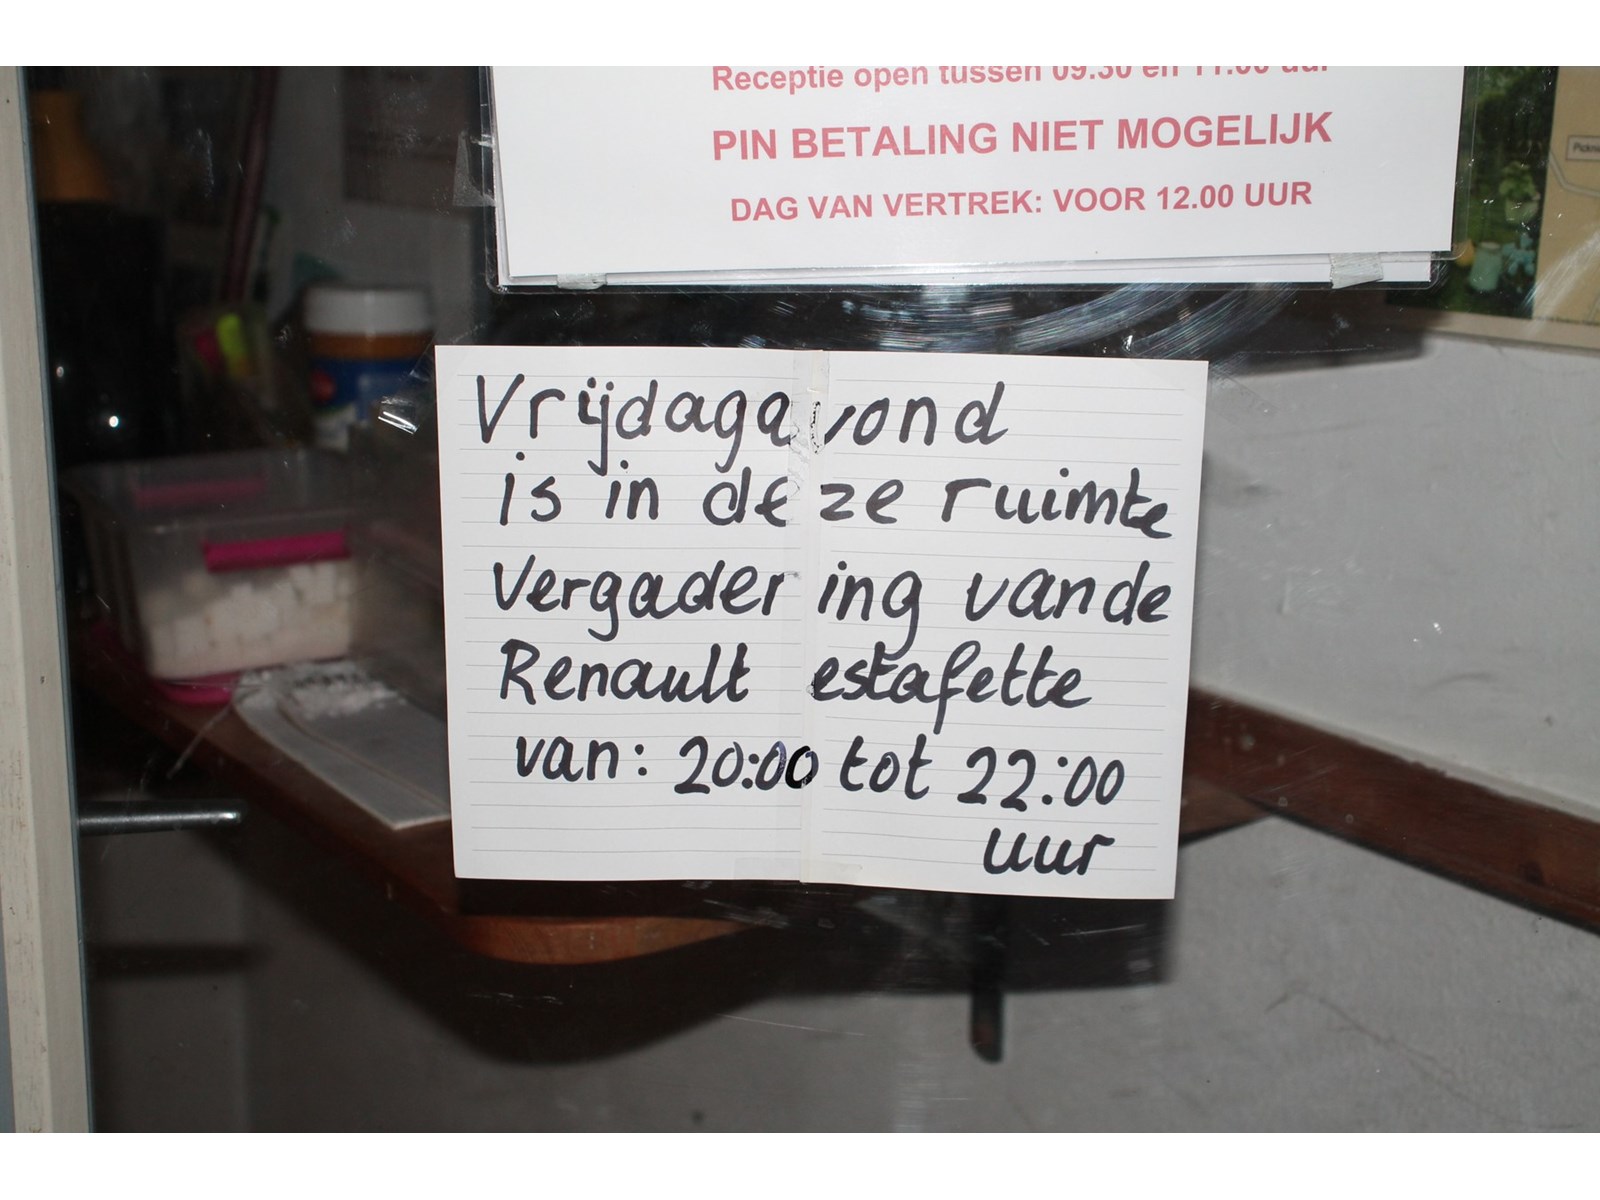 Receptie open tussen 09.30 en 11.00 uur
PIN BETALING NIET MOGELIJK
DAG VAN VERTREK: VOOR 12.00 UUR
Vrijdagavond
is in deze ruimte
Vergadering vande
Renault estafette
van: 20:00 tot 22:00
uur